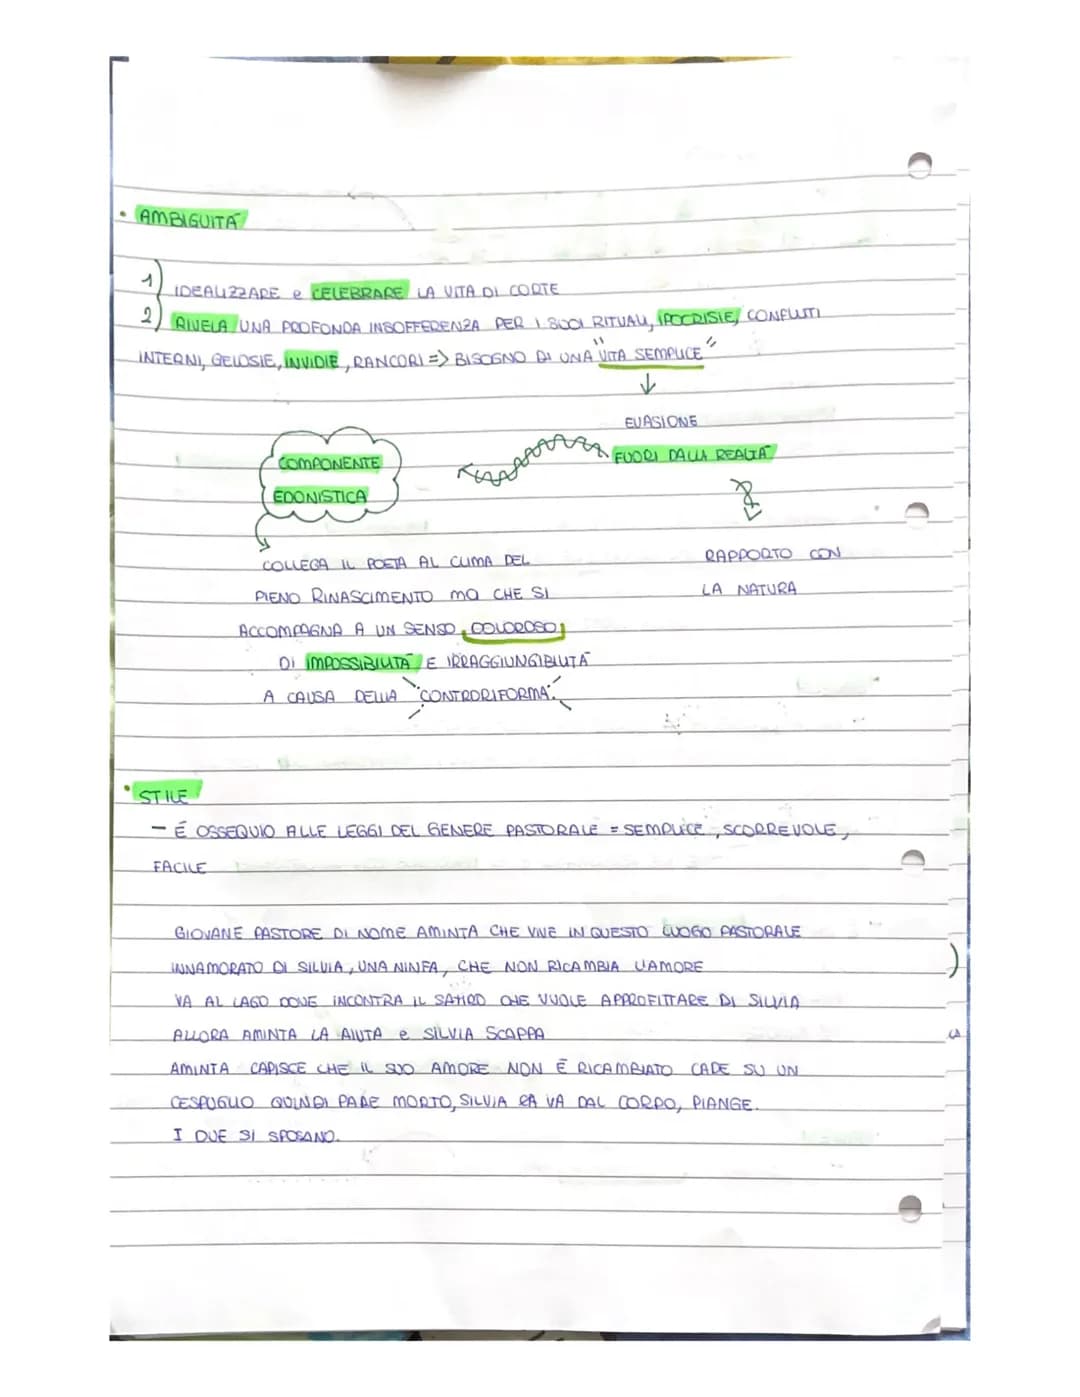 • AMBIGUITÀ
1) IDEALIZZARE e CELEBRARE LA VITA DI CORTE
2) RIVELA UNA PROFONDA INSOFFERENZA PER I SUOI RITUALI, IPOCRISIE, CONFLITTI
INTERNI, GELOSIE, INVIDIE, RANCORI => BISOGNO DI UNA "VITA SEMPLICE"
↓
EVASIONE
FUORI DALLA REALTÀ
COMPONENTE
EDONISTICA
COLLEGA IL POETA AL CLIMA DEL
PIENO RINASCIMENTO ma CHE SI
ACCOMPAGNA A UN SENSO DOLOROSO
DI IMPOSSIBILITÀ E IRRAGGIUNGIBILITÀ
A CAUSA DELLA CONTRORIFORMA.
RAPPORTO CON
LA NATURA
• STILE
- È OSSEQUIO ALLE LEGGI DEL GENERE PASTORALE = SEMPLICE, SCORREVOLE,
FACILE
GIOVANE PASTORE DI NOME AMINTA CHE VIVE IN QUESTO LUOGO PASTORALE
INNAMORATO DI SILVIA, UNA NINFA, CHE NON RICAMBIA L'AMORE
VA AL LAGO DOVE INCONTRA IL SATIRO CHE VUOLE APPROFITTARE DI SILVIA
ALLORA AMINTA LA AIUTA e SILVIA SCAPPA
AMINTA CAPISCE CHE IL SUO AMORE NON È RICAMBIATO CADE SU UN
CESPUGLIO QUINDI PARE MORTO, SILVIA VA DAL CORPO, PIANGE.
I DUE SI SPOSANO.